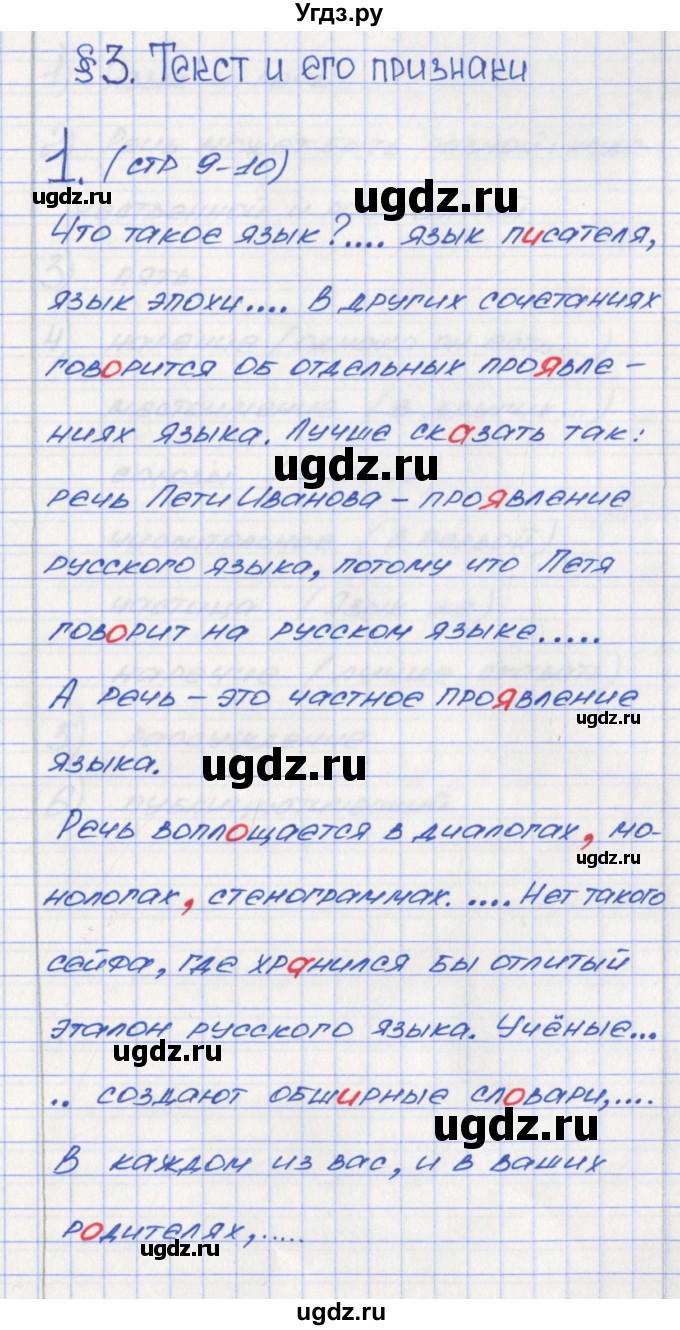 Угдз.ру
§3. Текст и его признаки
1. (стр 9-10)
ugdz.ru
ugdz.ru
Что такое язык?.... язык писателя,
язык эпохи.... В других сочетаниях
говорится об отдельных проявле-
ниях языка. Лучше сказать так:
ugdz.ru
речь Пети Иванова - проявление
русского языка, потому что Петя
говорит на русском языке.....
А речь - это частное проявление
ugdz.ru
языка.
ugdz.ru
Речь воплощается в диалогах, мо-
ugdz.ru
нологах, стенограммах. .... Нет такого
сейфа, где хранился бы отлитый
эталон русского языка. Учёные...
ugdz.ru
.. создают обширные словари,....
ugdz.ru
В каждом из вас, и в ваших
родителях,.....
ugdz.ru
ugdz.ru